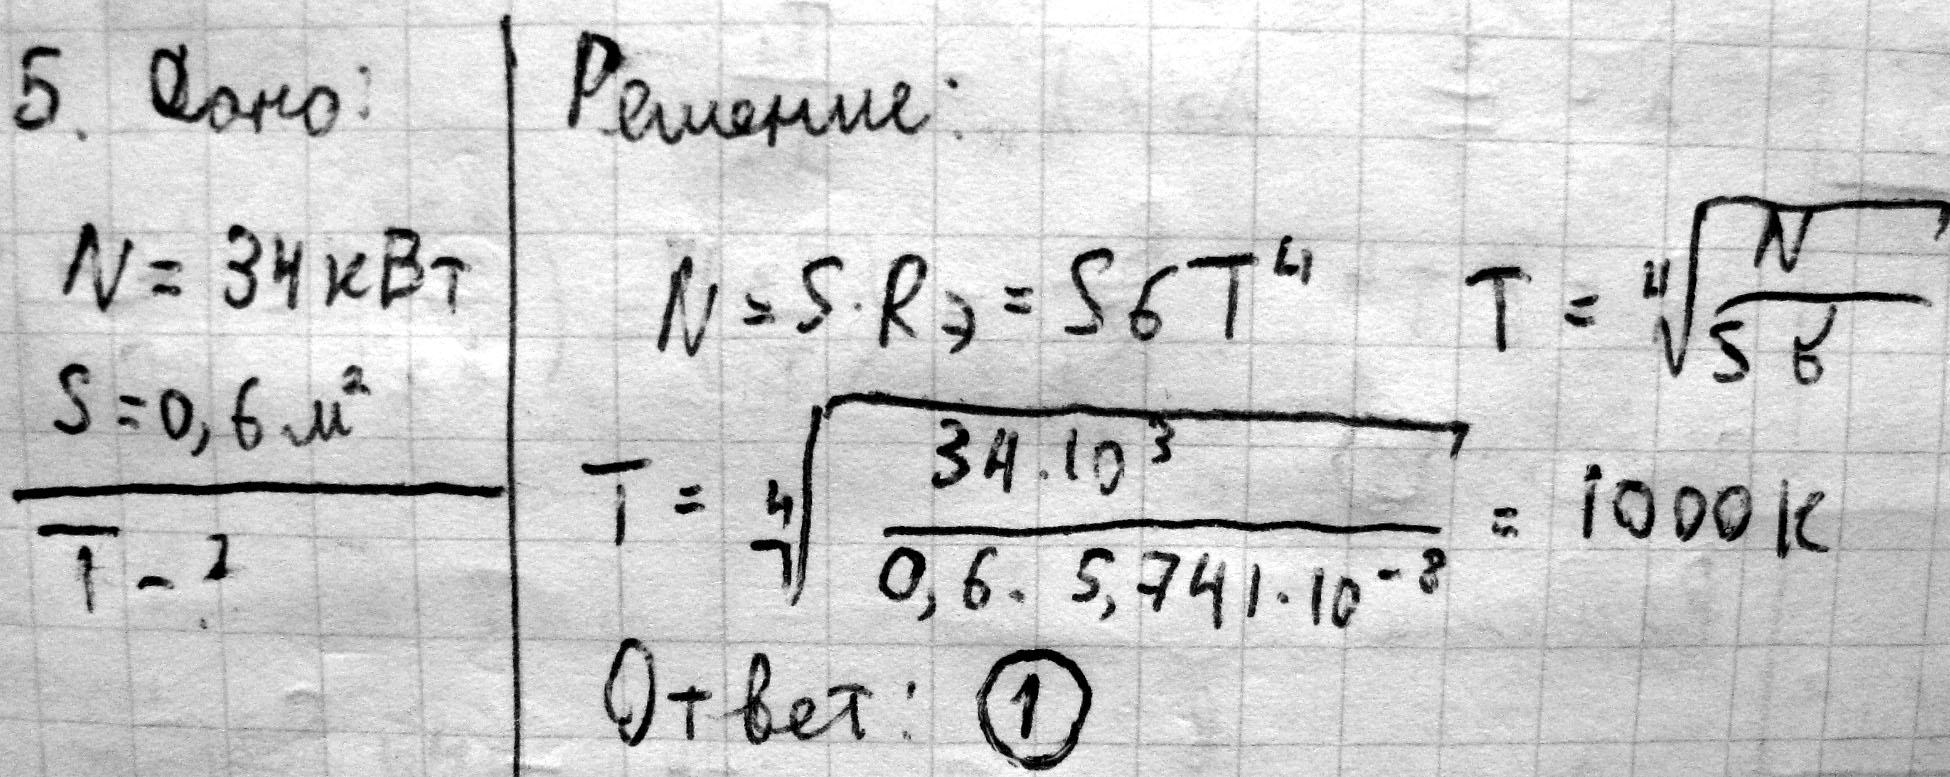 5. Дано:
N = 34 кВт
S = 0,6 м²
T - ?
Решение:
N = S · Rэ = SσT⁴ T = ⁴√(N / Sσ)
T = ⁴√(34 · 10³ / 0,6 · 5,741 · 10⁻⁸) = 1000 К
Ответ: 1